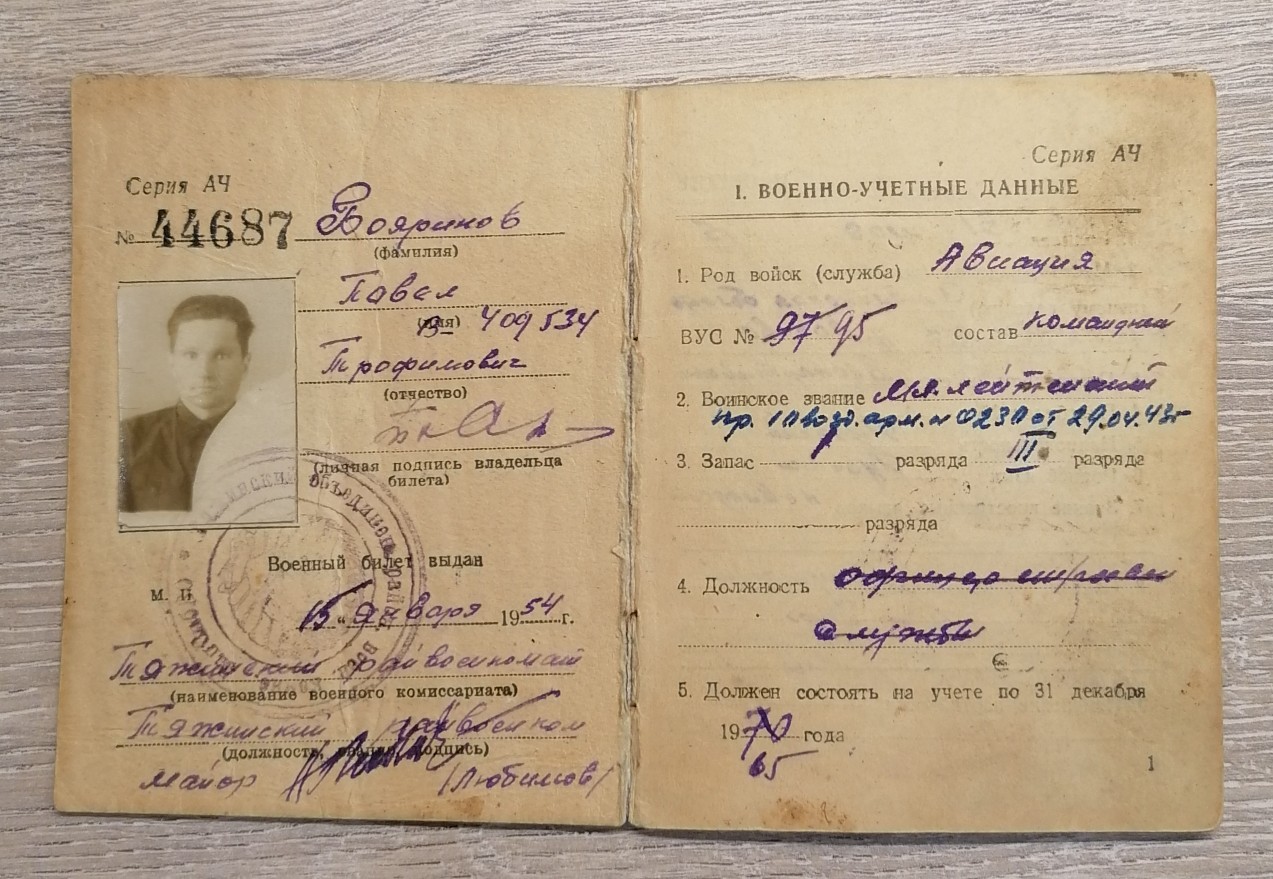 Серия АЧ
№ 44687 Бояринов
(фамилия)
Павел
(имя)
В- 409534
Трофимович
(отчество)
(личная подпись владельца
билета)
Военный билет выдан
М. П.
"15" января 1954 г.
Тяжинский райвоенкомат
(наименование военного комиссариата)
Тяжинский райвоенком
(должность, звание, подпись)
майор (Любимов)
Серия АЧ
I. ВОЕННО-УЧЕТНЫЕ ДАННЫЕ
1. Род войск (служба) Авиация
ВУС № 97 95 состав командный
2. Воинское звание Мл. лейтенант
пр. 1 возд. арм. № 0230 от 29.04.43г
3. Запас разряда III разряда
разряда
4. Должность офицер
службы
5. Должен состоять на учете по 31 декабря
1970 года
65
1